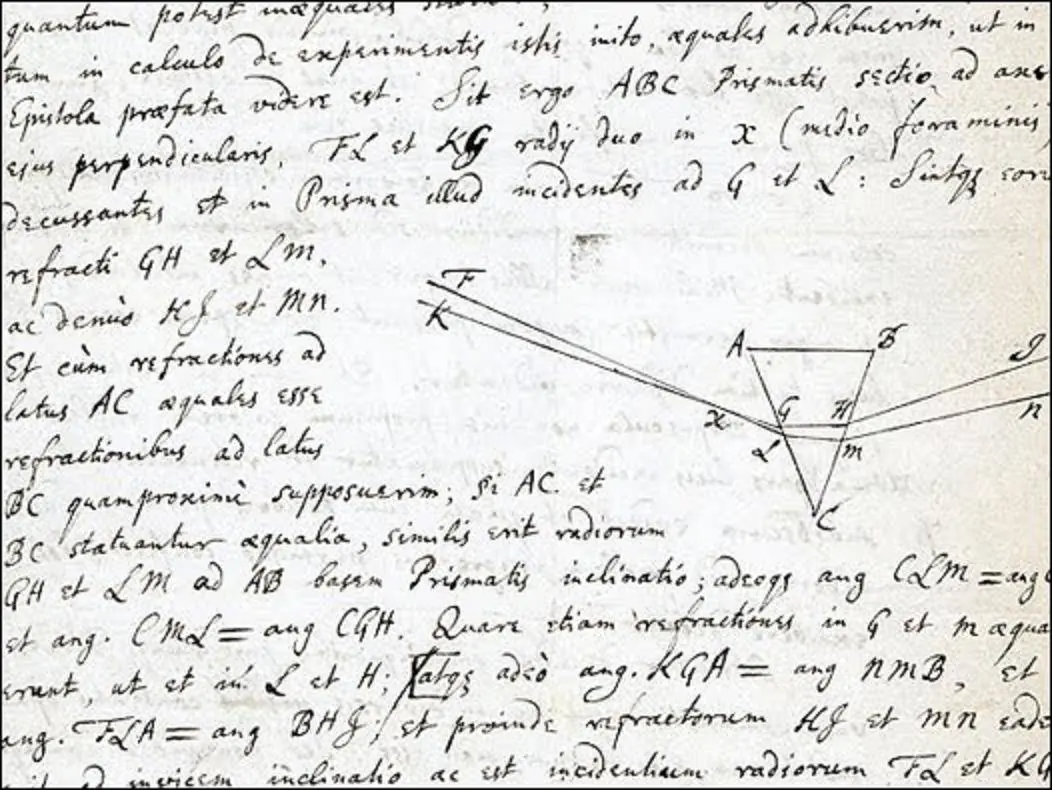 quantum potest inæquales
tum in calculo de experimentis istis inito, æquales adhibuerim, ut in
Epistola præfata videre est. Sit ergo ABC Prismatis sectio ad axe
ejus perpendicularis FL et KG radij duo in X (medio foraminis)
decussantes et in Prisma illud incidentes ad G et L: Sintqꝫ eor
refracti GH et LM,
ac denuò HJ et MN.
Et cùm refractiones ad
latus AC æquales esse
refractionibus ad latus
BC quamproximè supposuerim; si AC et
BC statuantur æqualia, similis erit radiorum
GH et LM ad AB basem Prismatis inclinatio; adeoqꝫ ang CLM = ang
et ang. CML = ang CGH. Quare etiam refractiones in G et m æqua
erunt, ut et in L et H; atqꝫ adeò ang. KGA = ang NMB, et
ang. FLA = ang BHJ; et proinde refractorum HJ et MN eade
ad invicem inclinatio ac est incidentium radiorum FL et KG
F
K
A
B
J
G
H
X
n
L
m
C